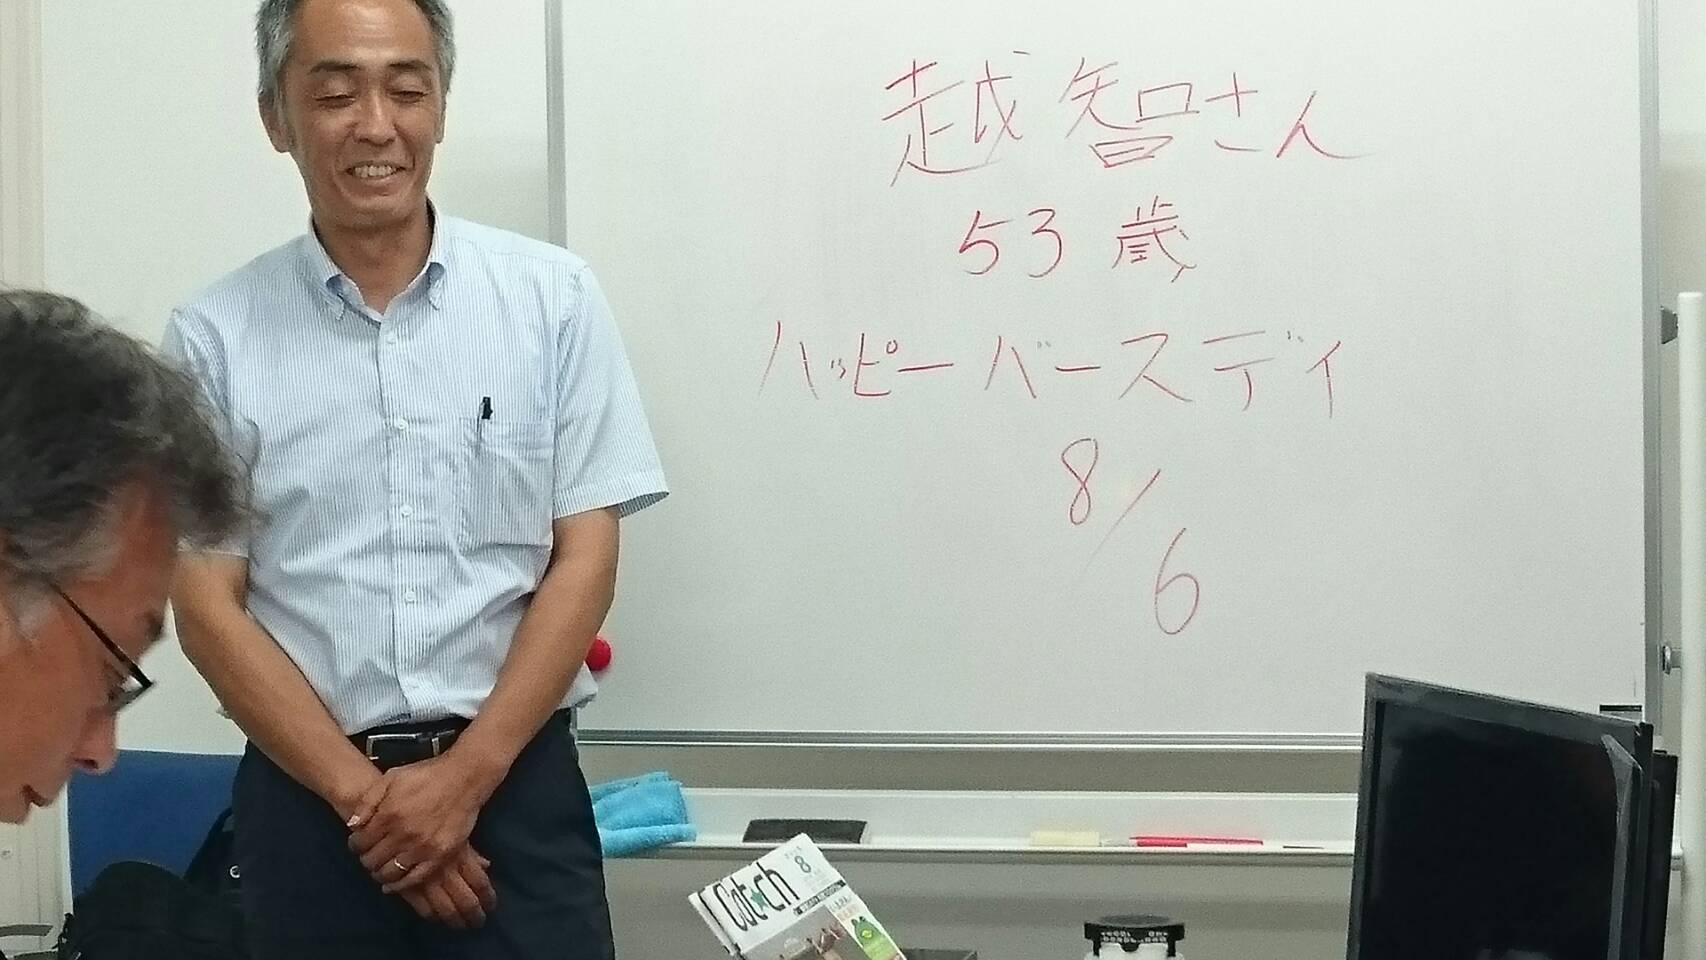 越智さん
53歳
ハッピーバースディ
8/6
Cat★ch
8